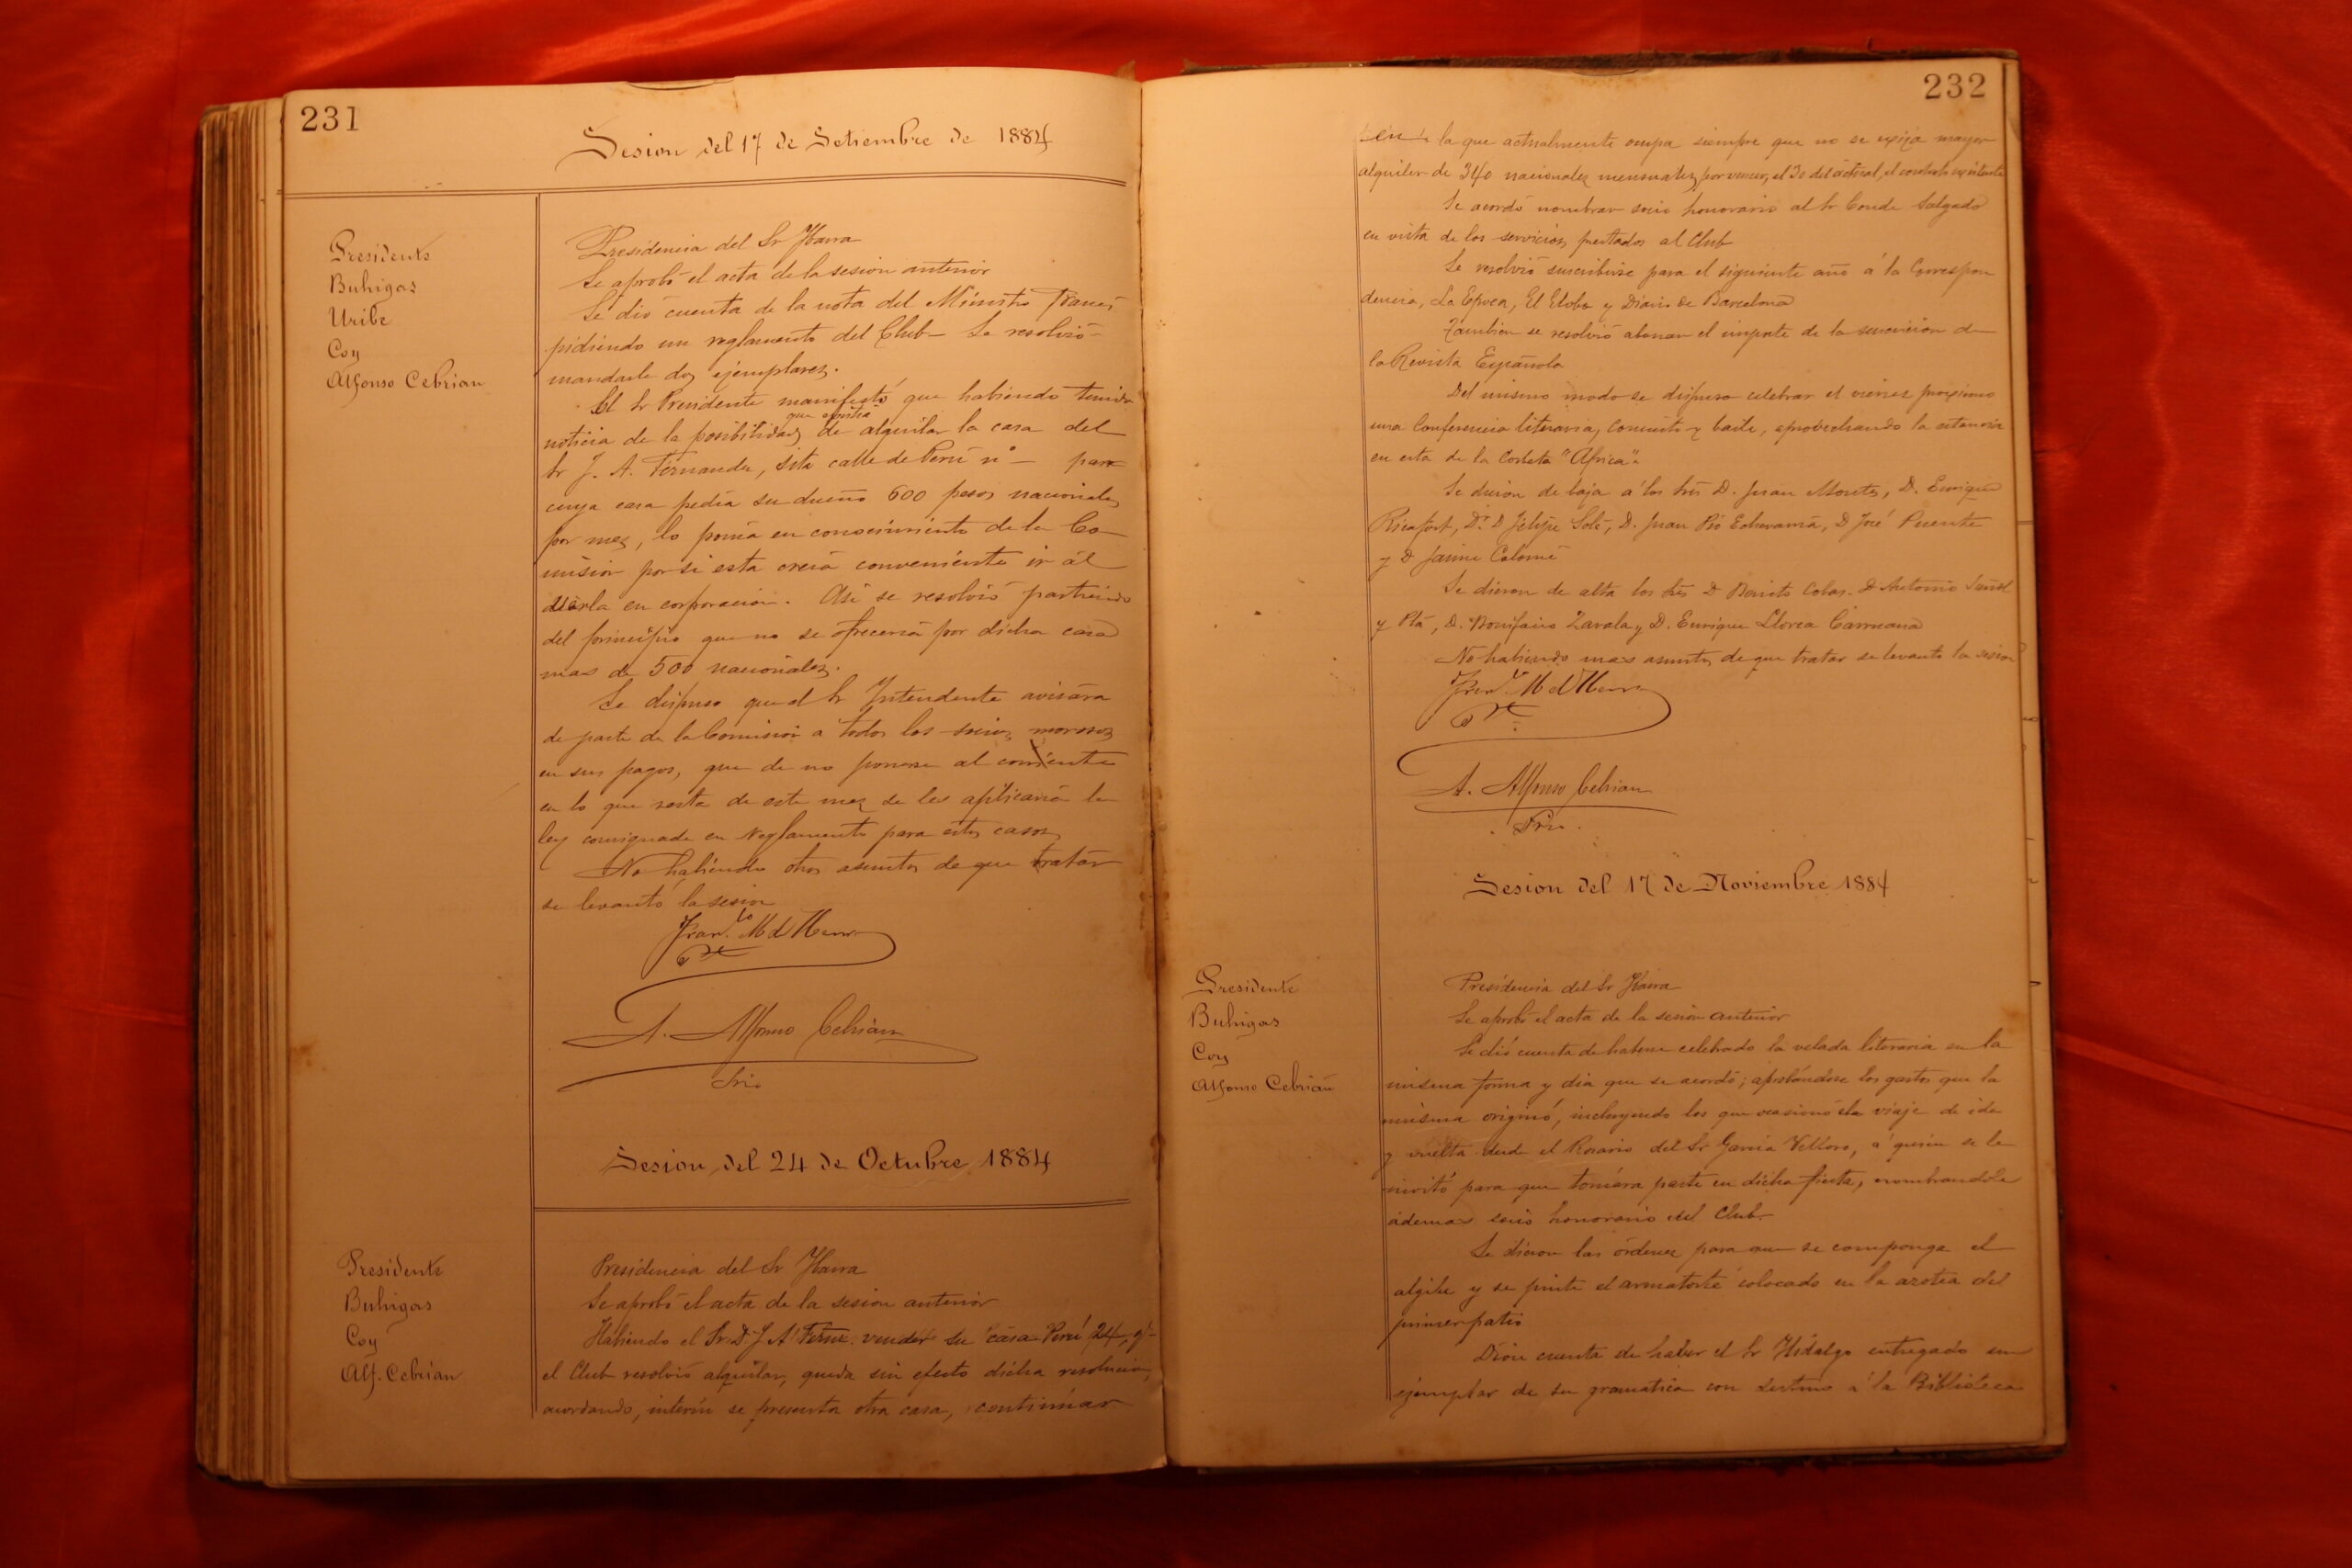 231
Sesion del 17 de Setiembre de 1884
Presidente
Buhigas
Uribe
Coy
Alfonso Cebrian
Presidencia del Sr Ybarra
Se aprobó el acta de la sesion anterior
Se dió cuenta de la nota del Ministro Francés
pidiendo un reglamento del Club— Se resolvió
mandarle dos ejemplares.
El Sr Presidente manifestó que habiendo tenido
que existia
noticia de la posibilidad de alquilar la casa del
Sr J. A. Fernandez, sita calle de Perú nº — para
cuya casa pedia su dueño 600 pesos nacionales
por mes, lo ponia en conocimiento de la Co-
mision por si esta creia conveniente ir á
verla en corporacion. Asi se resolvió partiendo
del principio que no se ofreceria por dicha casa
mas de 500 nacionales.
Se dispuso que el Sr Yntendente avisára
de parte de la Comision á todos los socios morosos
en sus pagos, que de no ponerse al corriente
en lo que resta de este mes se les aplicaria la
ley consignada en Reglamento para estos casos
No habiendo otros asuntos de que tratar
se levantó la sesion
A. Alfonso Cebrián
Srio
Sesion del 24 de Octubre 1884
Presidente
Buhigas
Coy
Alf. Cebrian
Presidencia del Sr Ybarra
Se aprobó el acta de la sesion anterior
Habiendo el Sr. D. J. A. Fernz. vender su casa Perú 24, q'
el Club resolvió alquilar, queda sin efecto dicha resolucion,
acordando, interin se presenta otra casa, continuar
232
en la que actualmente ocupa siempre que no se exija mayor
alquiler de 340 nacionales mensuales, por vencer, el 30 del actual, el contrato existente
Se acordó nombrar socio honorario al Sr Conde Salgado
en vista de los servicios prestados al Club
Se resolvió suscribirse para el siguiente año á la Correspon
dencia, La Epoca, El Globo y Diario de Barcelona
Tambien se resolvió abonar el importe de la suscricion de
la Revista Española
Del mismo modo se dispuso celebrar el viernes proximo
una Conferencia literaria, concierto y baile, aprobechando la estancia
en esta de la Corbeta "Africa".
Se dieron de baja á los Srs D. Juan Montes, D. Enrique
Ricafort, Dr. D Felipe Solá, D. Juan Pio Echevarria, D José Puente
y D Jaime Colomé
Se dieron de alta los Srs D Benito Cobas. D Antonio Suñol
y Plá, D. Bonifacio Zavala y D. Enrique Llorca Carruana
No habiendo mas asuntos de que tratar se levantó la sesion
A. Alfonso Cebrian
Srio.
Sesion del 17 de Noviembre 1884
Presidente
Buhigas
Coy
Alfonso Cebrián
Presidencia del Sr Ybarra
Se aprobó el acta de la sesion anterior
Se dió cuenta de haberse celebrado la velada literaria en la
misma forma y dia que se acordó; aprobándose los gastos que la
misma originó, incluyendo los que ocasionó el viaje de ida
y vuelta desde el Rosario del Sr Garcia Velloso, á quien se le
invitó para que tomára parte en dicha fiesta, nombrandole
ademas socio honorario del Club.
Se dieron las órdenes para que se componga el
algibe y se pinte el armatoste colocado en la azotea del
primer patio
Dióse cuenta de haber el Sr Hidalgo entregado un
ejemplar de su gramatica con destino á la Biblioteca